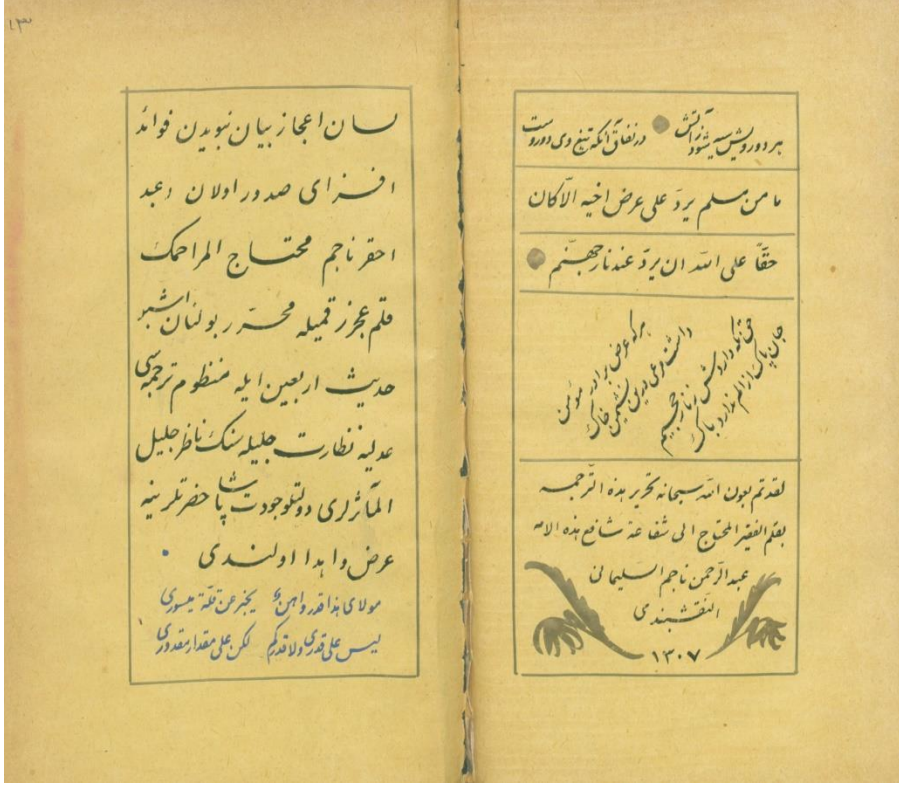 هر دو رویش سیه شود ز آتش در نفاق آنکه تیغ وی دوروست
ما من مسلم یردّ علی عرض اخیه الاّ کان
حقّا علی الله ان یردّ عنه نار جهنّم
هرکه عرض برادر مومن
داشت مرعی درین نشیمن خاک
حق نکه داردش ز نار جحیم
جان پاک از الم ندارد باک
لقد تم بعون الله سبحانه تحریر هذه الترجمه
بقلم الفقیر المحتاج الی شفاعة شافع هذه الامه
عبدالرّحمن ناجم السلیمانی
النقشبندی
۱۳۰۷
۱۳
لسان اعجاز بیان نبویدن فوائد
افزای صدور اولان و عبد
احقر ناجم محتاج المراحمک
قلم عجز رقمیله محرّر بولنان اشبو
حدیث اربعین ایله منظوم ترجمه‌سی
عدلیه نظارت جلیله سنک ناظر جلیل
المآثرلری دولتلو جودت پاشا حضرتلرینه
عرض واهدا اولندی
مولای هذا قدر واهنٌ یخبر عن قلّة میسوری
لیس علی قدری ولا قدرکم لکن علی مقدار مقدوری